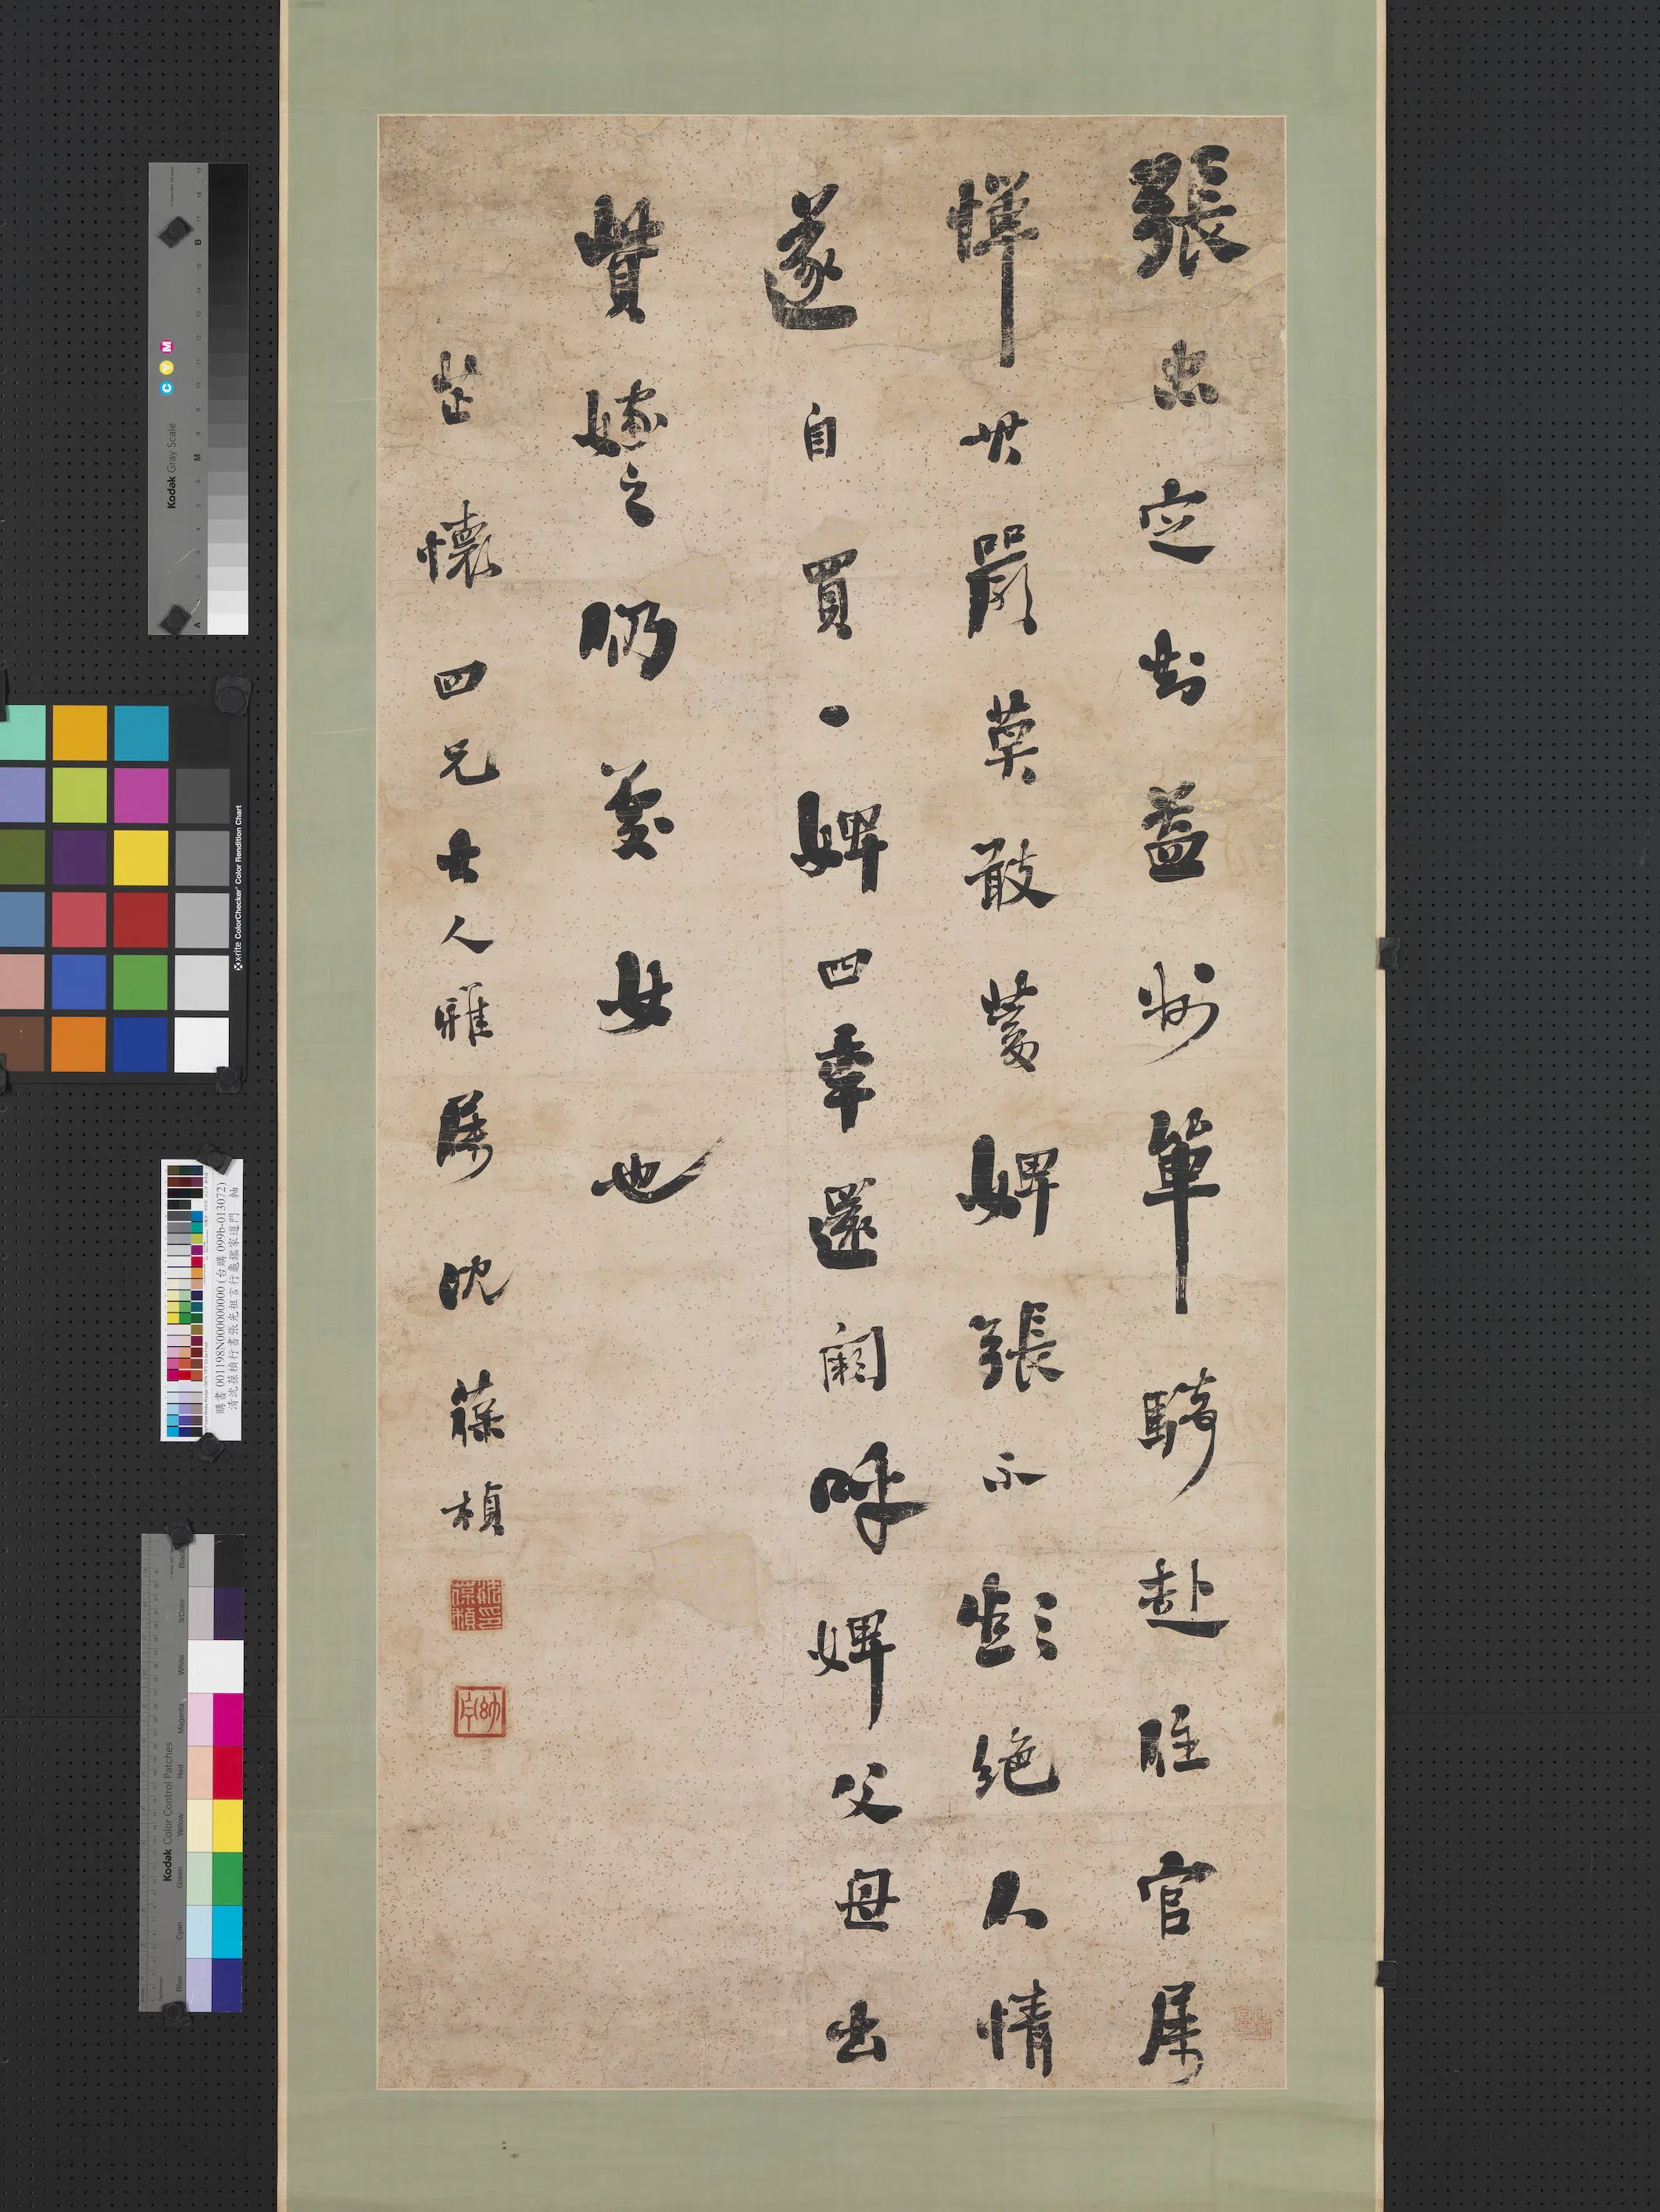 張忠定知益州單騎赴任官屬
憚其嚴莫敢蓄婢張不彭絕人情
遂自買一婢四年還闕呼婢父母出
貲嫁之仍處女也
芷懷四兄大人雅屬 沈葆楨
沈葆楨印
幼丹
Kodak Gray Scale
C Y M
A
M
B
x-rite ColorChecker Color Rendition Chart
購書 001198N000000000 (台購 099b-013072)
清沈葆楨行書張光祖言行龜鑑家道門 軸
Kodak Color Control Patches
Blue
Cyan
Green
Yellow
Red
Magenta
White
3/Color
Black